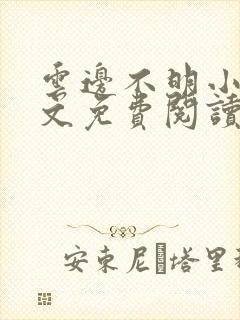 雲邊不明小
文免費閱讀
安東尼·塔里